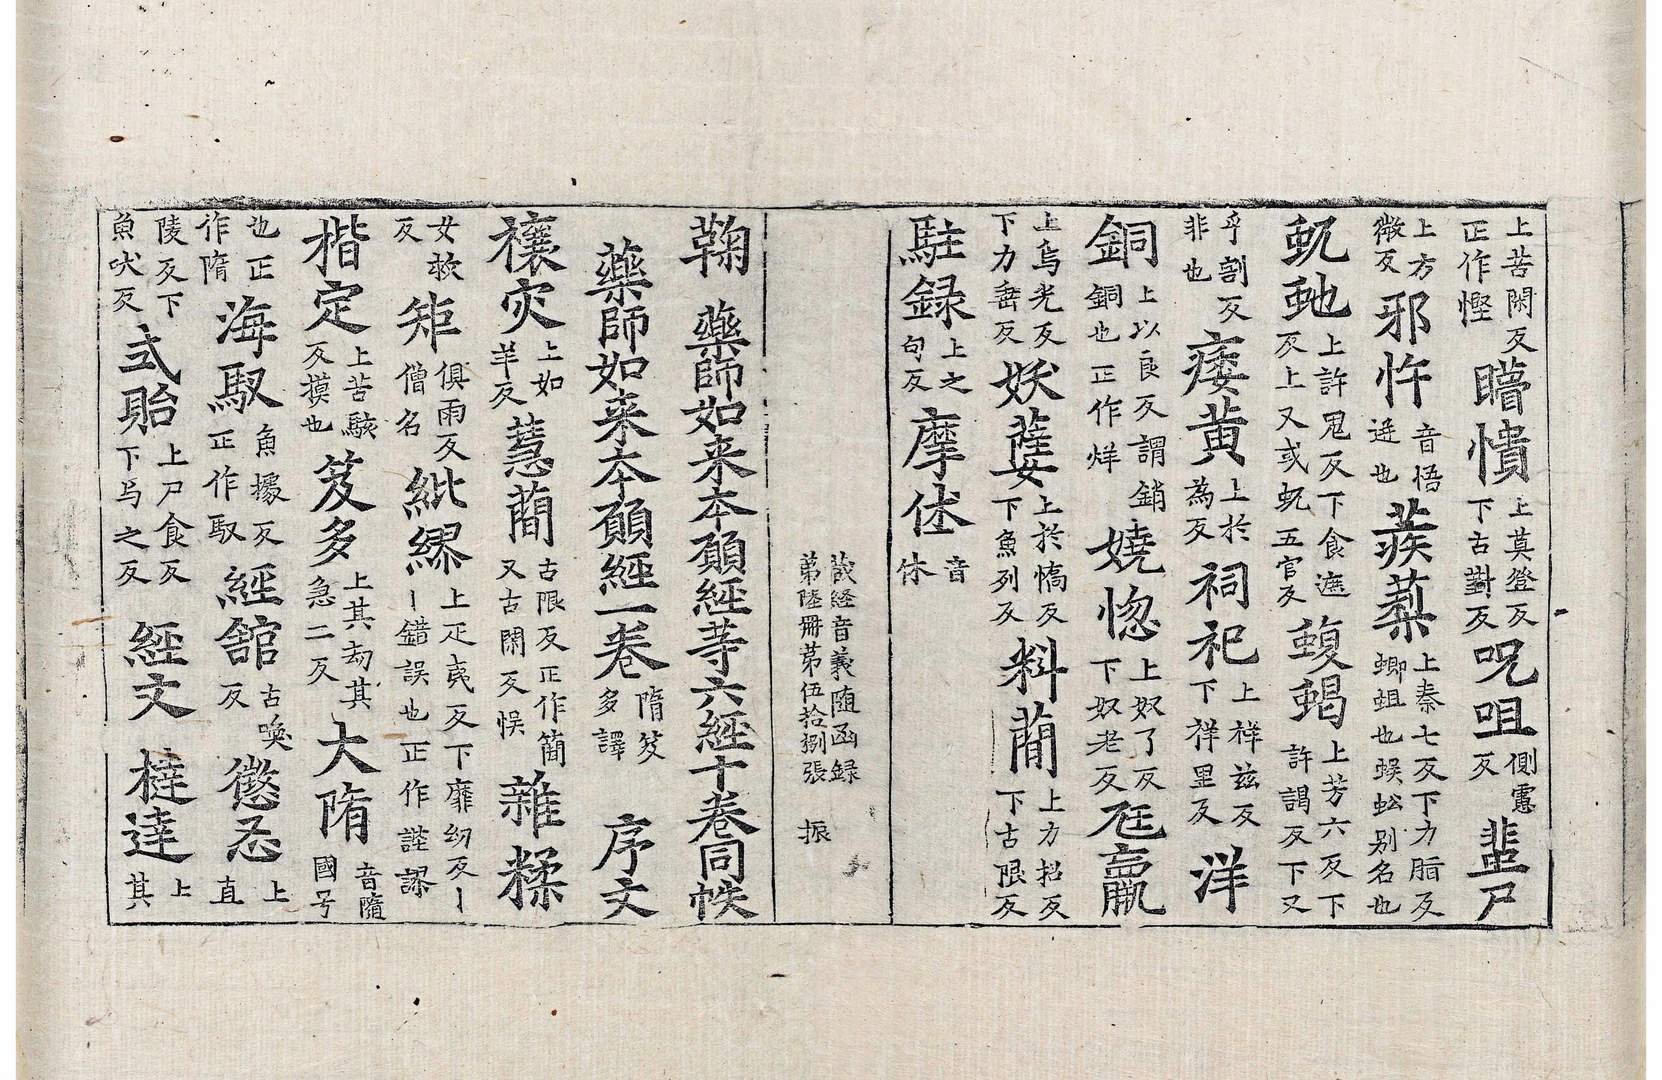 上苦閑反正作慳瞢憒上莫登反下古對反呪咀側慮反韮尸
上方微反邪忤音悟逆也蒺䔧上秦七反下力脂反蝍蛆也蜈蚣别名也
虺虵上許鬼反下食遮反上又或虺五官反蝮蝎上芳六反下許謁反下又
乎割反非也痿黄上於為反祠祀上祥兹反下祥里反洋
銅上以良反謂銷銅也正作烊嬈惚上奴了反下奴老反尫羸
上烏光反下力垂反妖㜸上於憍反下魚列反料蕳上力招反下古限反
駐録上之句反摩㑅音休
藏経音義随函録第陸冊苐伍拾捌張 振
鞠 藥師如来本願經等六經十卷同帙
藥師如来本願經一卷隋笈多譯 序文
禳灾上如羊反慧蕳古限反正作簡又古閑反悮雜糅
女救反矩俱雨反僧名紕繆上疋夷反下靡纫反丨丨錯誤也正作誰謬
楷定上苦駭反摸也笈多上其劫其急二反大隋音隨國号
也正作隋海馭魚據反正作馭經舘古喚反懲忍上直
陵反下魚吠反式貽上尸食反下与之反 經文 㨖達上其